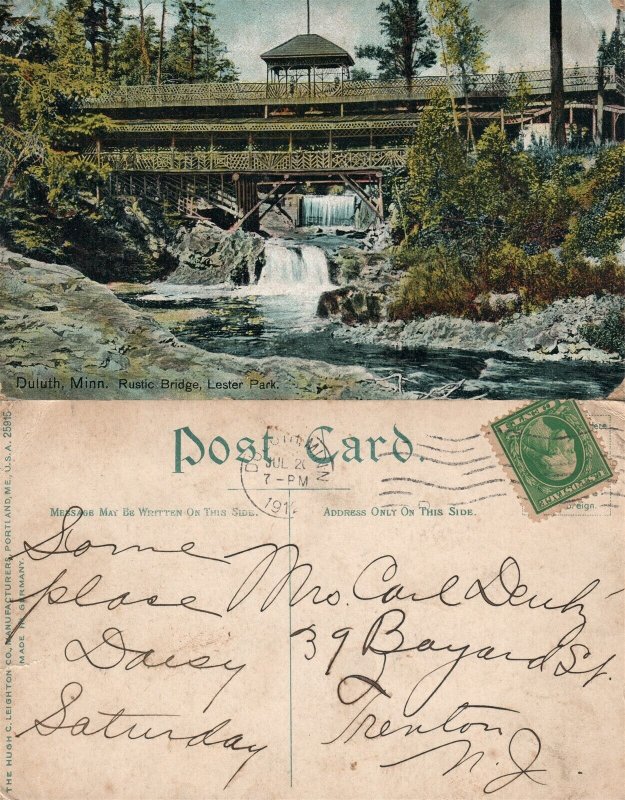 Duluth, Minn. Rustic Bridge, Lester Park.
THE HUGH C. LEIGHTON CO., MANUFACTURERS, PORTLAND, ME., U.S.A. 25915
MADE IN GERMANY.
Post Card.
MESSAGE MAY BE WRITTEN ON THIS SIDE.
ADDRESS ONLY ON THIS SIDE.
JUL 20
7-PM
Some
place
Daisy
Saturday
Mrs. Carl
39 Bayard St.
Trenton
N.J.